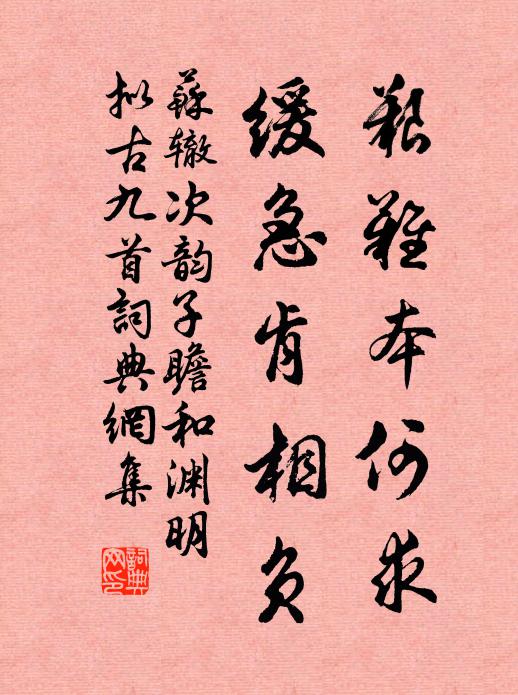 艱難本何求
緩急肯相負
蘇辙次韵子瞻和渊明
拟古九首詞典網集
詞典网印